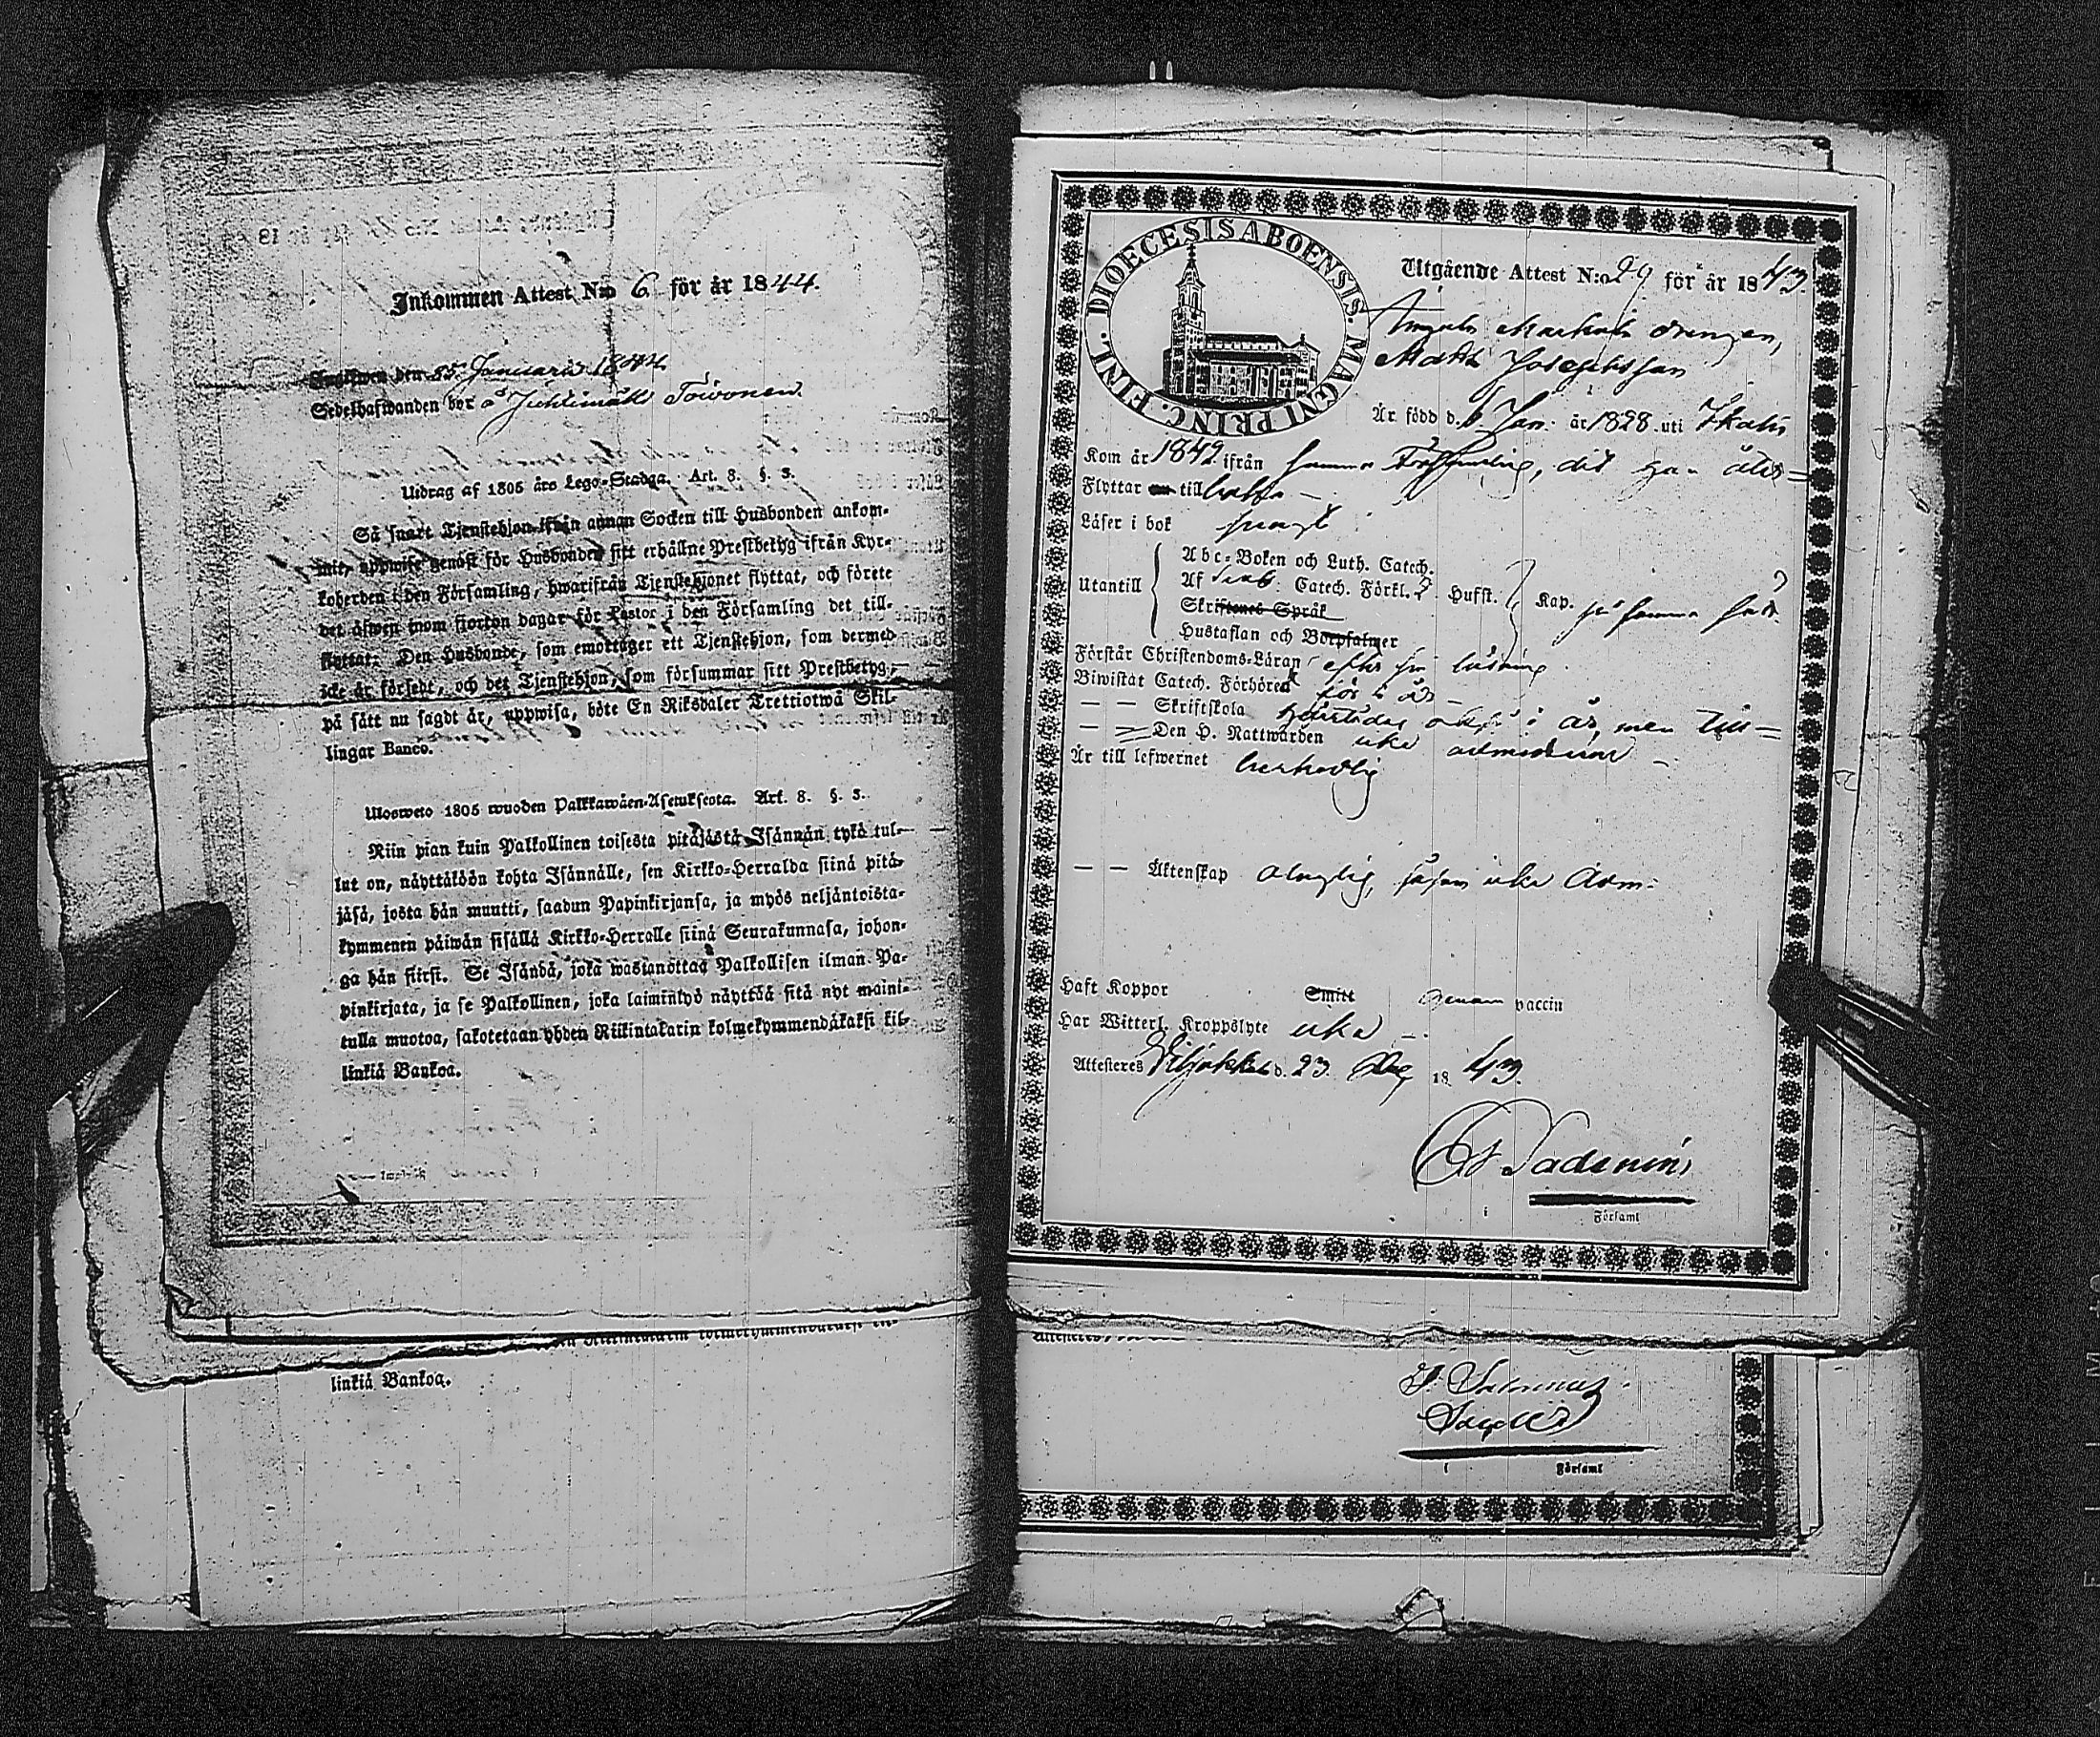 Inkommen Attest N:o 6 för år 1844.
Inskrifwen den 15 Januarii 1844.
Sedelhafwanden bor å Juhtimäki Toivonen.
Utdrag af 1805 års Lego-Stadga. Art. 8. §. 3.
Så snart Tjenstehjon ifrån annan Socken till Husbonden ankom-
mit, uppwise genast för Husbonden sitt erhållne Prestbetyg ifrån Kyr-
koherden i den Församling, hwarifrån Tjenstehjonet flyttat, och förete
det äfwen inom fjorton dagar för Pastor i den Församling det till-
flyttat. Den Husbonde, som emottager ett Tjenstehjon, som dermed
icke är försedt, och det Tjenstehjon, som försummar sitt Prestbetyg,
på sätt nu sagdt är, uppwisa, böte En Riksdaler Trettiotwå Skil-
lingar Banco.
Ulosweto 1805 wuoden Palkkawäen-Asetuksesta. Art. 8. §. 3.
Niin pian kuin Palkollinen toisesta pitäjästä Isännän tykö tul-
lut on, näyttäköön kohta Isännälle, sen Kirkko-Herralda siinä pitä-
jäsä, josta hän muutti, saadun Papinkirjansa, ja myös neljäntoista-
kymmenen päiwän sisällä Kirkko-Herralle siinä Seurakunnasa, johon-
ga hän siirsi. Se Isändä, joka wastanottaa Palkollisen ilman Pa-
pinkirjata, ja se Palkollinen, joka laimintyö näyttää sitä nyt maini-
tulla muotoa, sakotetaan yhden Riikintalarin kolmekymmendäkaksi kil-
linkiä Bankoa.
linkiä Bankoa.
DIOECESIS ABOENSIS. MAGNI PRINC. FINL.
Utgående Attest N:o 29 för år 1843.
drengen,
Matts Josephsson
Är född d. 6 Jan. år 1828 uti Ikalis
Kom år 1842 ifrån samma Församling, dit han åter=
Flyttar till baka –
Läser i bok
Utantill
Abc-Boken och Luth. Catech.
Af Catech. Förkl. Husft. Kap. på samma sätt
Skriftenes Språk
Hustaflan och Botpsalmer
Förstår Christendoms-Läran efter sin läsning.
Biwistat Catech. Förhören för i år –
— — Skriftskola också i år, men till=
— — Den H. Nattwarden icke admitterad –
Är till lefwernet
— — Äktenskap oduglig, såsom icke Adm:
Haft Koppor Smitt genom vaccin
Har Witterl. Kroppslyte icke –.
Attesteres d. 23 Dec 1843.
Församl
i Församl